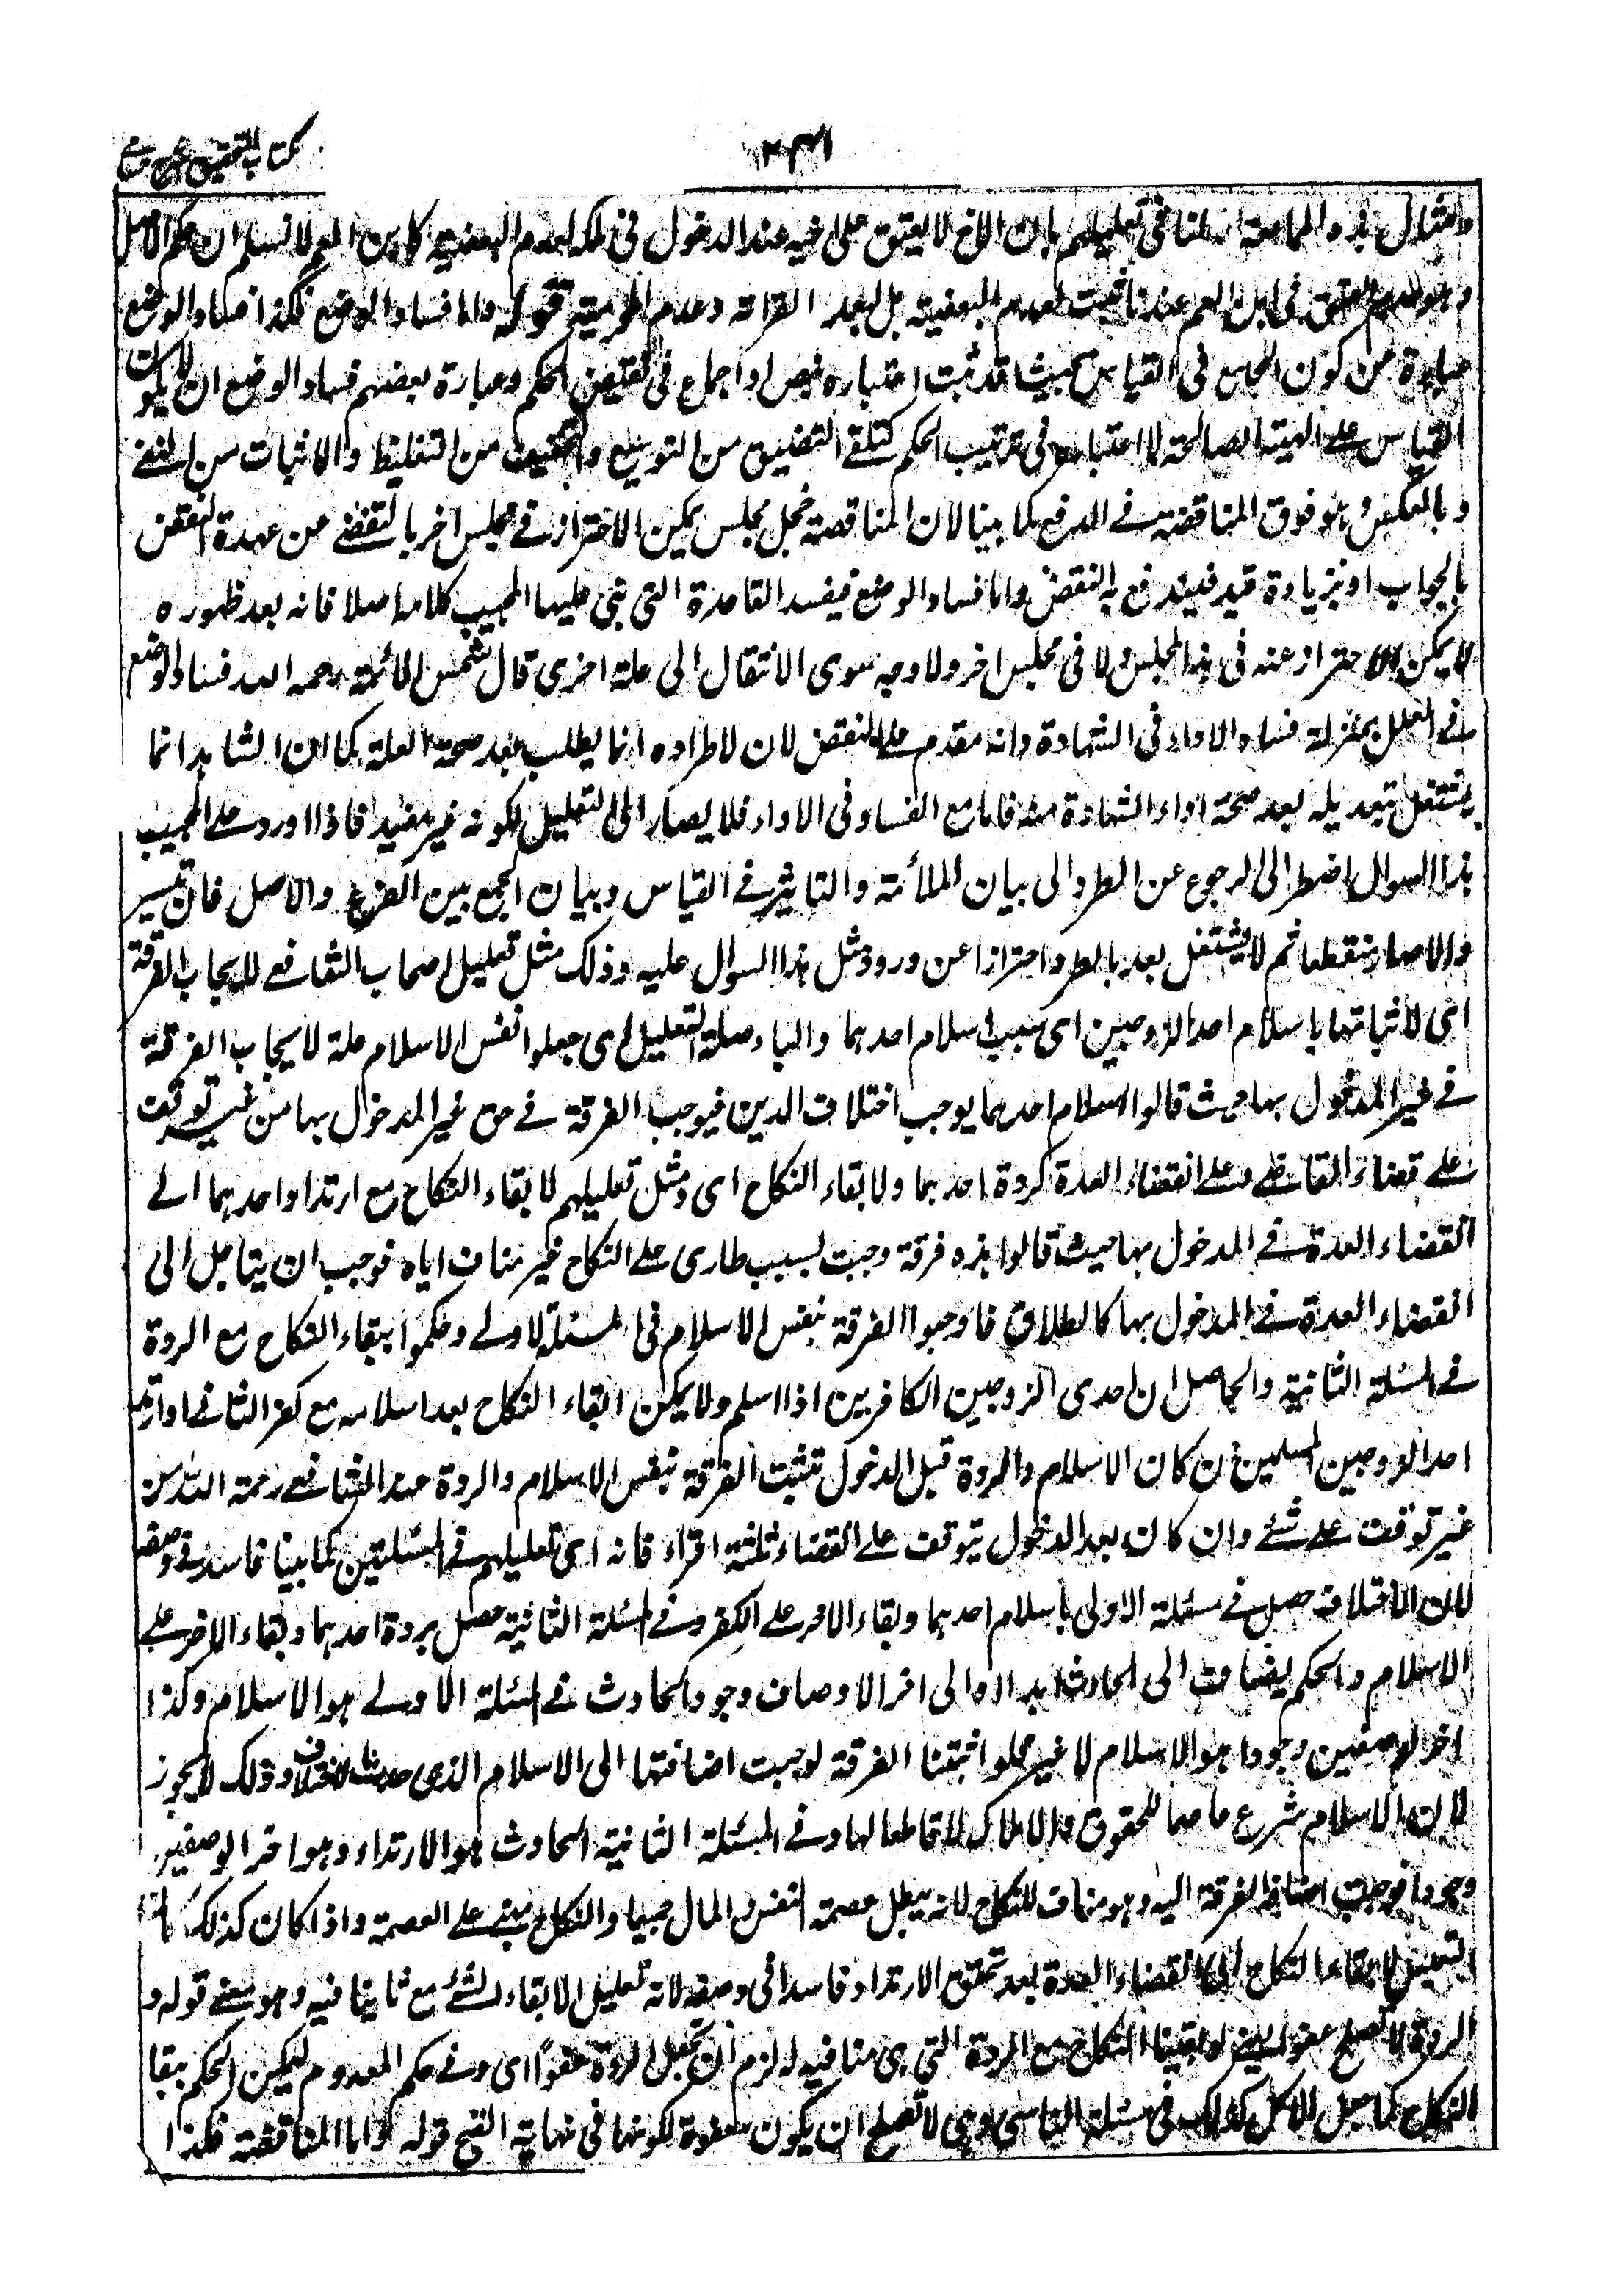 كتاب التحقيق شرح
٢٣١
ومثال هذه الممانعة ان قلنا في تعليلهم بان الاخ لا يعتق على اخيه عند الدخول في ملكه لعدم البعضية كابن العم لا نسلم ان حكم الاصل
وهو عدم العتق في ابن العم عندنا ثبت لعدم البعضية بل لبعد القرابة وعدم المحرمية قوله واما فساد الوضع فكذا فساد الوضع
عبارة عن كون الجامع في القياس بحيث قد ثبت اعتباره بنص او اجماع في نقيض الحكم وعبارة بعضهم فساد الوضع ان لا يكون
القياس على الهيئة الصالحة لاعتباره في ترتيب الحكم كتلقي التضييق من التوسيع والتخفيف من التغليظ والاثبات من النفي
وبالعكس وهو فوق المناقضة في الدفع كما بينا لان المناقضة خجل مجلس يمكن الاحتراز في مجلس اخر بالتفصي عن عهدة النقض
بالجواب او بزيادة قيد فيندفع به النقض واما فساد الوضع فيفسد القاعدة التي بني عليها المجيب كلامه اصلا فانه بعد ظهوره
لا يمكن الاحتراز عنه في هذا المجلس ولا في مجلس اخر ولا وجه سوى الانتقال الى علة اخرى قال شمس الائمة رحمه الله فساد الوضع
في العلل بمنزلة فساد الاداء في الشهادة وانه مقدم على النقض لان الاطراد انما يطلب بعد صحة العلة كما ان الشاهد انما
يشتغل بتعديله بعد صحة اداء الشهادة منه فاما مع الفساد في الاداء فلا يصار الى التعديل لكونه غير مفيد فاذا اورد على المجيب
هذا السوال اضطر الى الرجوع عن الطرد الى بيان الملائمة والتاثير في القياس وبيان الجمع بين الفرع والاصل فان تيسر
والا صار منقطعا ثم لا يشتغل بعد بالطرد احترازا عن ورود مثل هذا السوال عليه وذلك مثل تعليل اصحاب الشافعي لايجاب الفرقة
اي لاثباتها باسلام احد الزوجين اي بسبب اسلام احدهما والباء صلة التعليل اي جعلوا نفس الاسلام علة لايجاب الفرقة
في غير المدخول بها حيث قالوا اسلام احدهما يوجب اختلاف الدين فيوجب الفرقة في حق غير المدخول بها من غير توقف
على قضاء القاضي وعلى انقضاء العدة كردة احدهما ولابقاء النكاح اي ومثل تعليلهم لابقاء النكاح مع ارتداد احدهما الى
انقضاء العدة في المدخول بها حيث قالوا هذه فرقة وجبت بسبب طارى على النكاح غير مناف اياه فوجب ان يتاجل الى
انقضاء العدة في المدخول بها كالطلاق فاوجبوا الفرقة بنفس الاسلام في المسئلة الاولى وحكموا ببقاء النكاح مع الردة
في المسئلة الثانية والحاصل ان احدى الزوجين الكافرين اذا اسلم ولا يمكن ابقاء النكاح بعد اسلامه مع كفر الثاني او ارتد
احد الزوجين المسلمين فان كان الاسلام والردة قبل الدخول تثبت الفرقة بنفس الاسلام والردة عند الشافعي رحمة الله من
غير توقف على شئ وان كان بعد الدخول يتوقف على انقضاء ثلثة اقراء فانه اي تعليلهم في المسئلتين كما بينا فاسد في وضعه
لان الاختلاف حصل في مسئلة الاولى باسلام احدهما وبقاء الاخر على الكفر وفي المسئلة الثانية حصل بردة احدهما وبقاء الاخر على
الاسلام والحكم يضاف الى الحادث ابدا او الى اخر الاوصاف وجودا والحادث في المسئلة الاولى هو الاسلام وكذا
اخر الوصفين وجودا هو الاسلام لا غير فلو اثبتنا الفرقة لوجبت اضافتها الى الاسلام الذي حدث الاختلاف وذلك لا يجوز
لان الاسلام شرع عاصما للحقوق والاملاك لا قاطعا لها وفي المسئلة الثانية الحادث هو الارتداد وهو اخر الوصفين
وجودا فوجب اضافة الفرقة اليه وهو مناف للنكاح لانه يبطل عصمة النفس والمال جميعا والنكاح مبني على العصمة واذا كان كذلك كان
التعليل لابقاء النكاح الى انقضاء العدة بعد تحقق الارتداد فاسدا في وضعه لانه تعليل لابقاء الشئ مع ما ينافيه وهو معنى قوله و
الردة لا تصلح عفوا يعني لو بقينا النكاح مع الردة التي هي منافية له لزم ان تجعل الردة عفوا اي في حكم المعدوم ليمكن الحكم ببقا
النكاح كما جعل الاكل كذلك في مسئلة الناسي وهي لا تصلح ان يكون معفوة لكونها في نهاية القبح قوله واما المناقضة فكذا